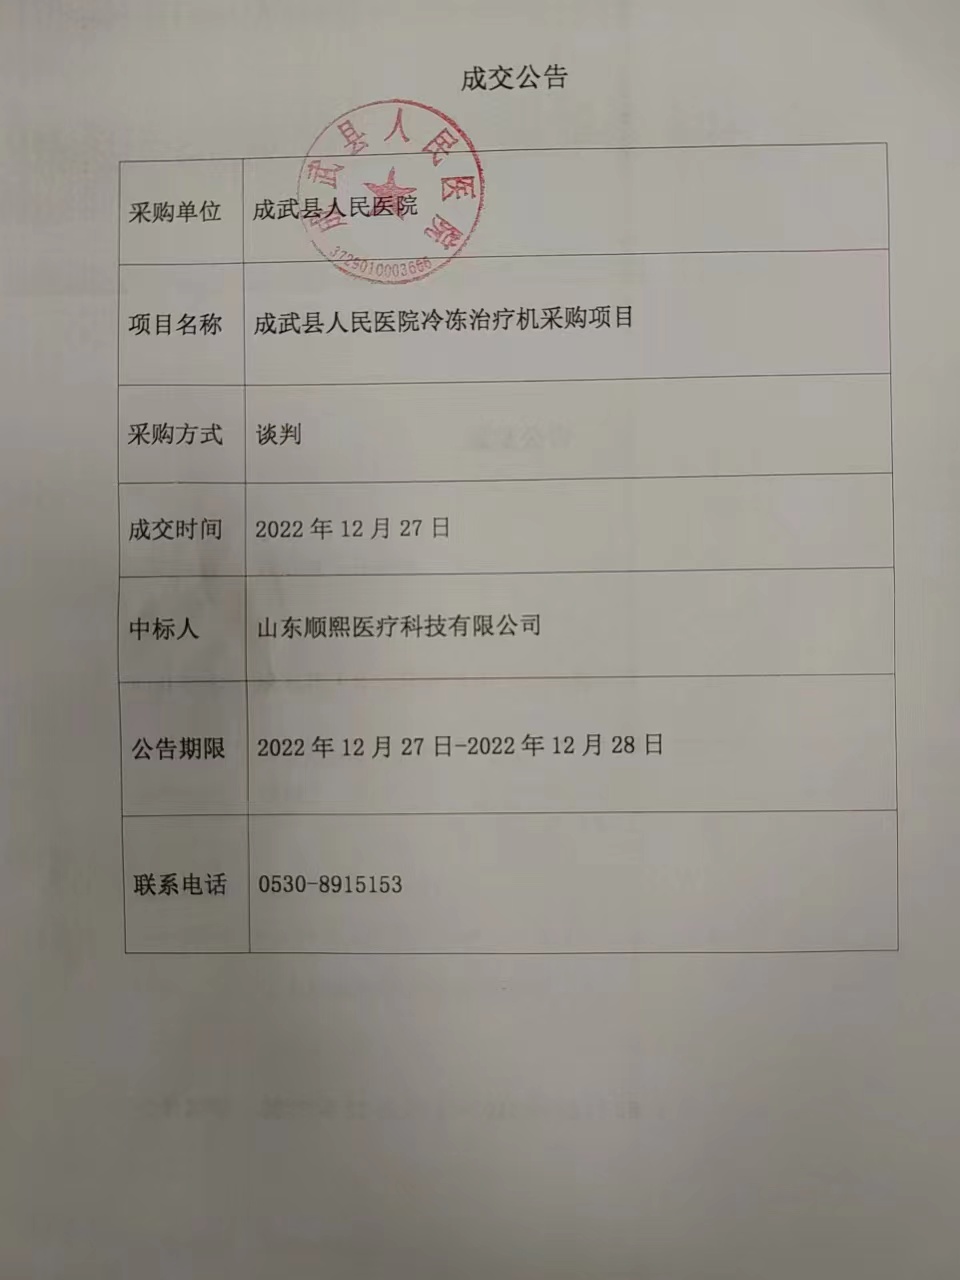 成交公告
成武县人民医院
3729010003666
采购单位 成武县人民医院
项目名称 成武县人民医院冷冻治疗机采购项目
采购方式 谈判
成交时间 2022年12月27日
中标人 山东顺熙医疗科技有限公司
公告期限 2022年12月27日-2022年12月28日
联系电话 0530-8915153